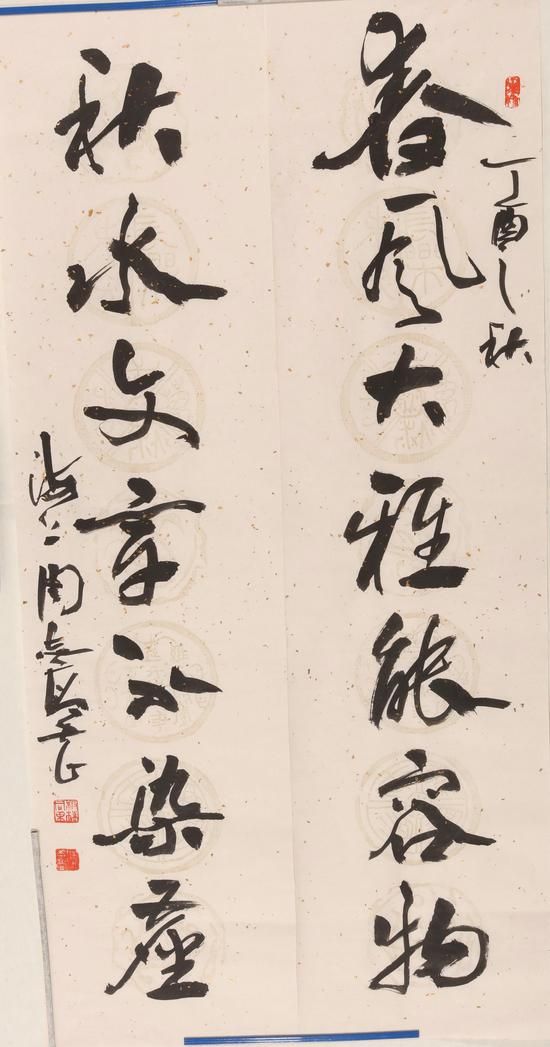 丁酉之秋
春风大雅能容物
秋水文章不染塵
海上周志高